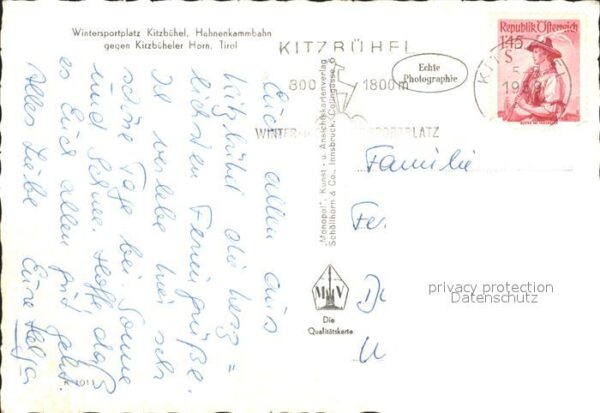 Wintersportplatz Kitzbühel, Hahnenkammbahn
gegen Kitzbüheler Horn, Tirol
KITZBÜHEL
800 1800m
WINTER- SPORTPLATZ
Echte
Photographie
Republik Österreich
1.45
S
KITZ
„Monopol“, Kunst- u. Ansichtskartenverlag
Schöllhorn & Co., Innsbruck, Colingasse 6
Euch allen aus
Kitzbühel die herz=
lichsten Feriengrüße.
Ich verlebe hier sehr
schöne Tage bei Sonne
und Schnee. Hoffe, daß
es Euch allen gut geht.
Alles Liebe Eure Helga
Familie
Fe.
D
U
M V
Die
Qualitätskarte
privacy protection
Datenschutz